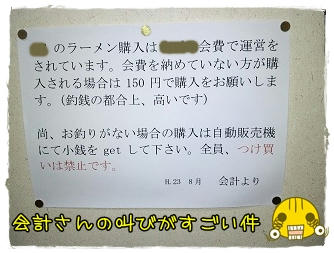 のラーメン購入は 会費で運営を
されています。会費を納めていない方が購
入される場合は 150 円で購入をお願いしま
す。(釣銭の都合上、高いです)
尚、お釣りがない場合の購入は自動販売機
にて小銭を get して下さい。全員、つけ買
いは禁止です。
H.23 8月 会計より
会計さんの叫びがすごい件